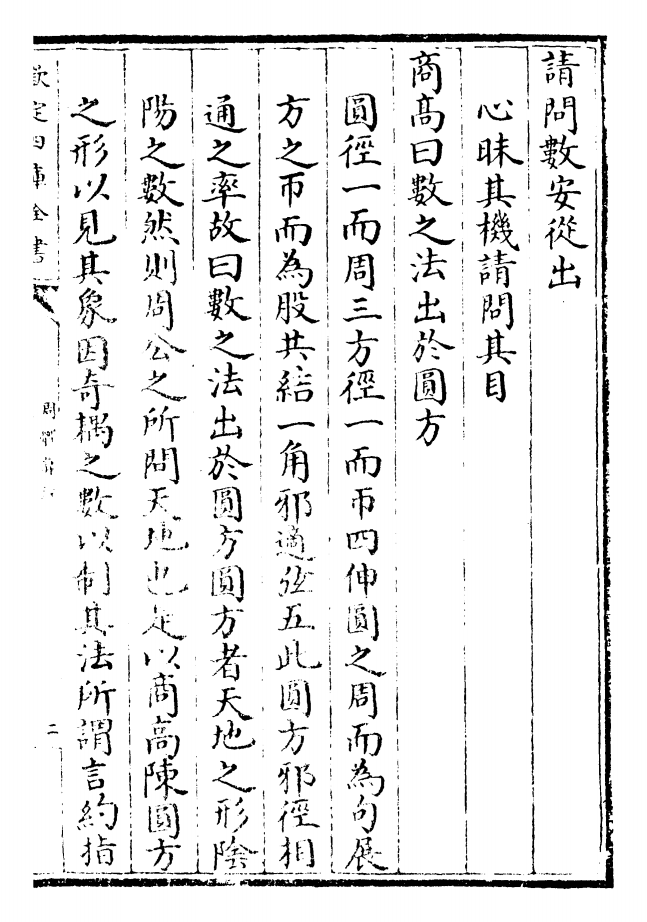 請問數安從出
心昧其機請問其目
商高曰數之法出於圓方
圓徑一而周三方徑一而帀四伸圓之周而為句展
方之帀而為股共結一角邪適弦五此圓方邪徑相
通之率故曰數之法出於圓方圓方者天地之形陰
陽之數然則周公之所問天地也是以商高陳圓方
之形以見其象因奇耦之數以制其法所謂言約指
欽定四庫全書
周髀算經
二